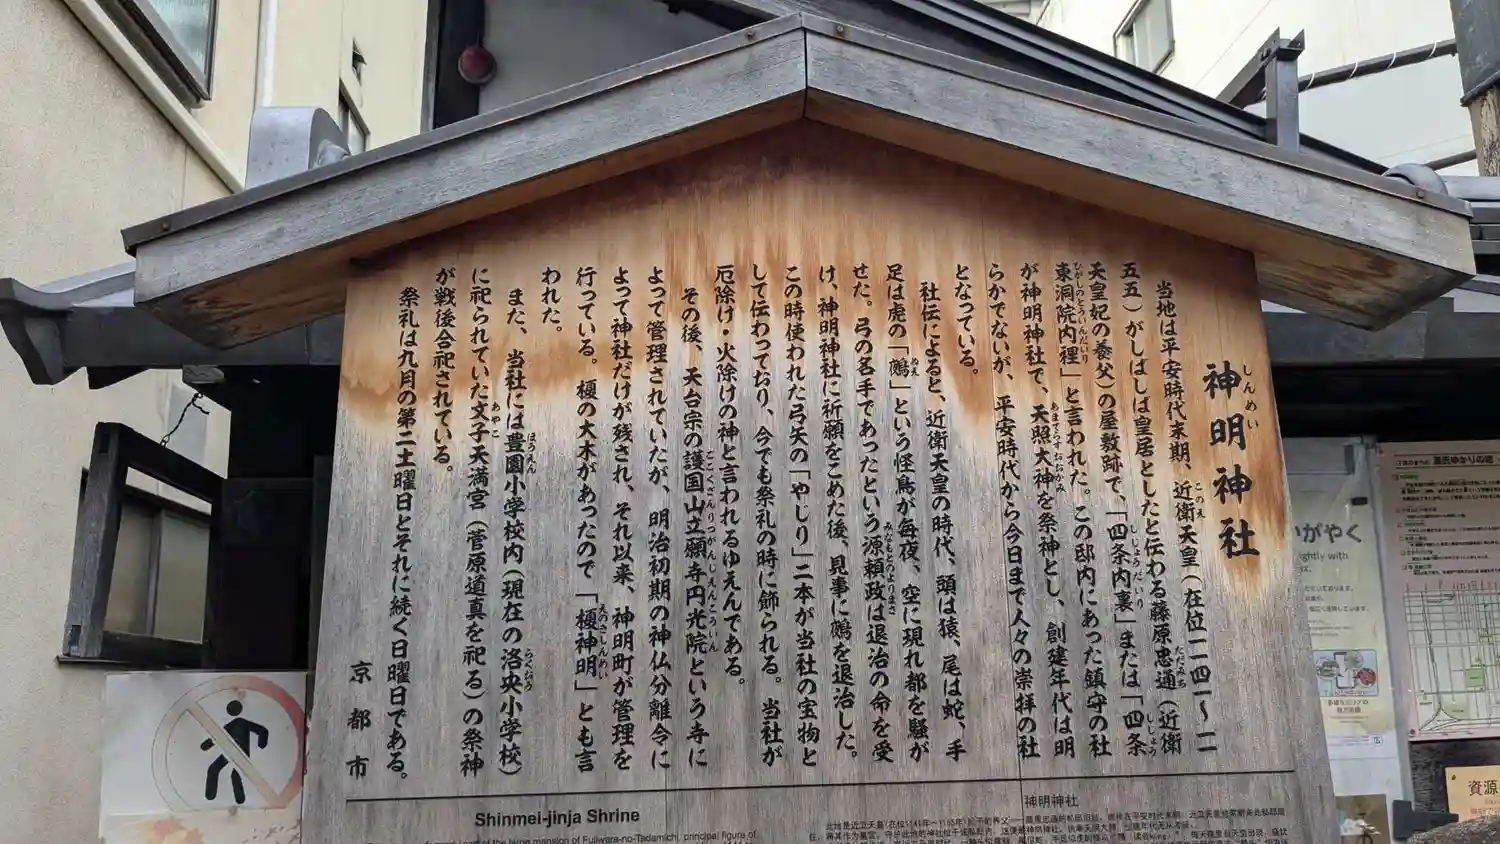 神明神社
しんめい
当地は平安時代末期、近衛天皇（在位一一四一～一一
五五）がしばしば皇居としたと伝わる藤原忠通（近衛
天皇妃の養父）の屋敷跡で、「四条内裏」または「四条
東洞院内裡」と言われた。この邸内にあった鎮守の社
が神明神社で、天照大神を祭神とし、創建年代は明
らかでないが、平安時代から今日まで人々の崇拝の社
となっている。
社伝によると、近衛天皇の時代、頭は猿、尾は蛇、手
足は虎の「鵺」という怪鳥が毎夜、空に現れ都を騒が
せた。弓の名手であったという源頼政は退治の命を受
け、神明神社に祈願をこめた後、見事に鵺を退治した。
この時使われた弓矢の「やじり」二本が当社の宝物と
して伝わっており、今でも祭礼の時に飾られる。当社が
厄除け・火除けの神と言われるゆえんである。
その後、天台宗の護国山立願寺円光院という寺に
よって管理されていたが、明治初期の神仏分離令に
よって神社だけが残され、それ以来、神明町が管理を
行っている。榎の大木があったので「榎神明」とも言
われた。
また、当社には豊園小学校内（現在の洛央小学校）
に祀られていた文子天満宮（菅原道真を祀る）の祭神
が戦後合祀されている。
祭礼は九月の第二土曜日とそれに続く日曜日である。
京都市
Shinmei-jinja Shrine
part of the large mansion of Fujiwara-no-Tadamichi, principal figure of
神明神社
いがやく
資源